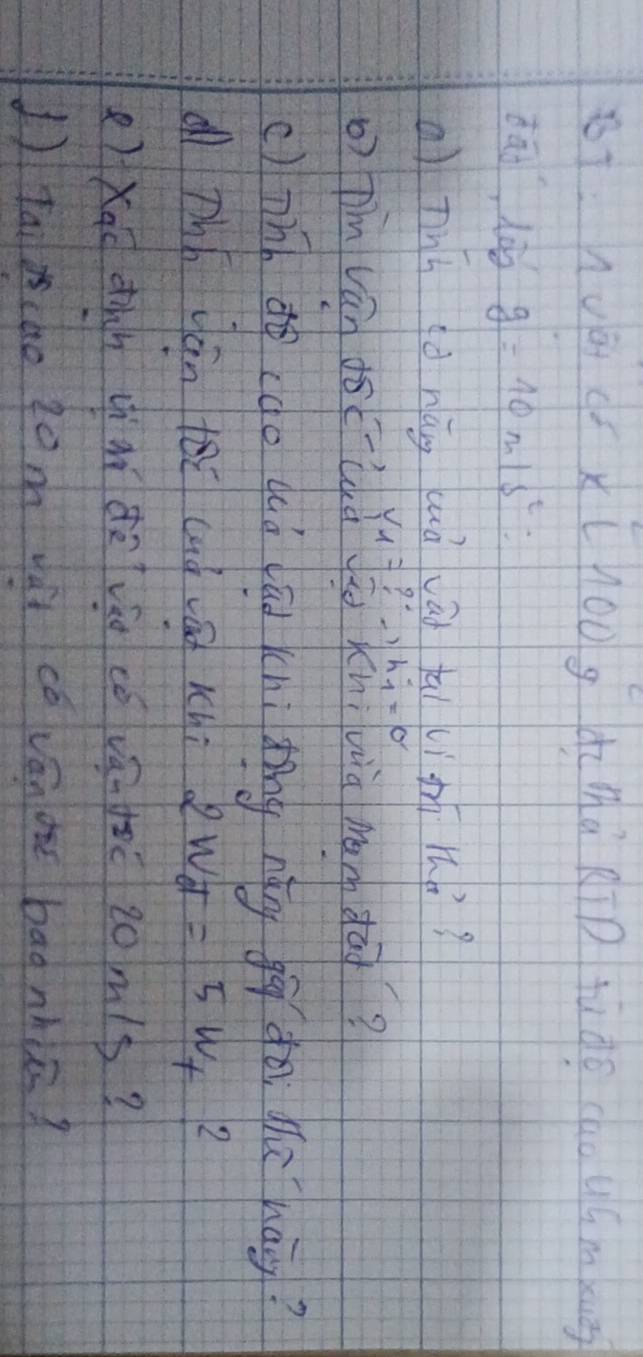 B1: 1 vật có KL 100g đc thả RTD từ độ cao 45m xuống
đất, lấy g = 10m/s²:
a) Tính cơ năng của vật tại vị trí thả?
v₁ = ? → h₁ = 0
b) Tìm vận tốc của vật khi vừa chạm đất?
c) Tính độ cao của vật khi động năng gấp đôi thế năng?
d) Tính vận tốc của vật khi 2Wđ = 5Wt ?
e) Xác định vị trí để vật có vận tốc 20m/s?
f) Tại độ cao 20m vật có vận tốc bao nhiêu?